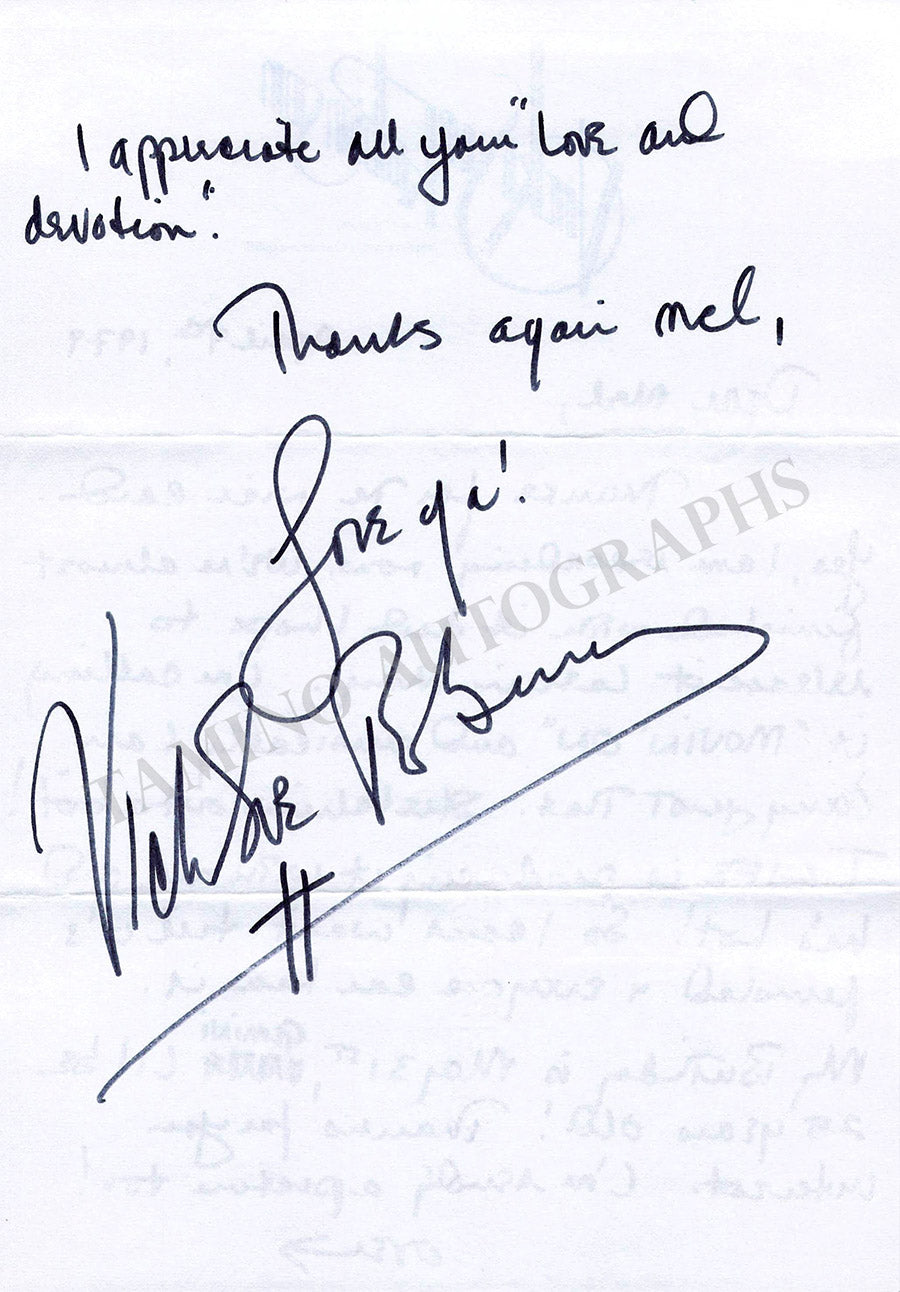 I appreciate all your "Love and
devotion".
Thanks again Mel,
Love ya!
Vicki Sue Robinson
TAMINO AUTOGRAPHS